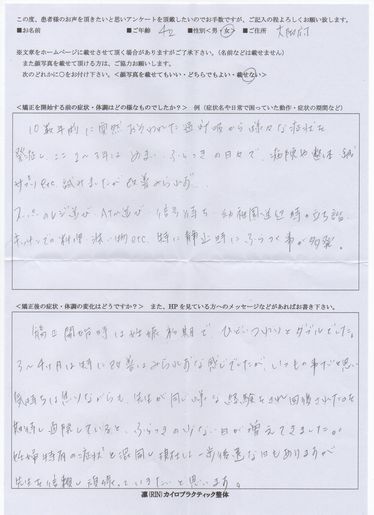 この度、患者様のお声を頂きたいと思いアンケートを頂戴したいのでお手数ですが、ご記入の程よろしくお願い致します。
■お名前 ■ご年齢 42 ■性別<男・女> ■ご住所 大田区
※文章をホームページに載せさせて頂く場合がありますがご了承下さい。(名前などは載せません)
また顔写真を載せて頂ける方は、ご協力お願いします。
次のどれかに○をお付け下さい。<顔写真を載せてもいい・どちらでもよい・載せない>
<矯正を開始する前の症状・体調はどの様なものでしたか?> 例(症状名や日常で困っていた動作・症状の期間など)
10数年前に突然おそわれた 様々な症状を
発症し ここ 年は めまい ふらつきの日々で、病院や整体 鍼
サプリetc. 試みましたが改善みられず…
スーパーのレジ並び ATM並び 信号待ち 幼稚園送迎時の立ち話
キッチンでの料理 洗い物etc. 特に静止時にふらつく事が多発。
<矯正後の症状・体調の変化はどうですか?> また、HPを見ている方へのメッセージなどがあればお書き下さい。
矯正開始時は妊娠初期で、ひどいつわりとダブルでした。
3~4ヶ月は特に改善はみられずな感じでしたが、いつもの事だと思い
気持ちは焦りながらも、先生が同じ様な経験をされ回復されたのを
期待し通院していると、ふらつきの少ない日が増えてきましたが
妊婦特有の症状と混同し 一歩後退な日もありますが
先生を信頼し頑張っていきたいと思います。
凛(RIN)カイロプラクティック整体